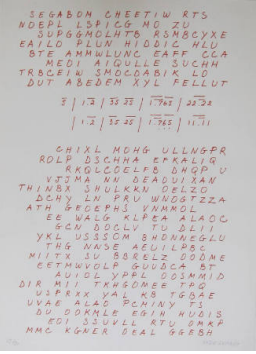 SEGABOM CHEETIW RTS
NOEPL LSPICG MO ZU
SUPGGMOLHTB RSMBCYXE
EAILO PLUN HIDDIC HLU
BTE AMMWLUNC EAFF CCA
MEDI AIQULLE SUCHH
TRBCEIW SMOCDABIK LO
DUT ABEDEM XYL FELLUT
CHIXL MDHG ULLNGPR
ROLP DSCHHA EFKALIQ
RKQLCOELFB DHQP U
VJJMA NN DEADUIXAN
THINBX SHULKKN OELZO
DCHY LN PRU WNOGTZZA
ATH GEOEPHS VNMMOL
EE WALG KLPEA ALAOC
GCN DOCLV TU DLII
YKL USSSOM BHONNEGLU
THG NNSE AEUILPBC
MIITX SU BBRELZ DODME
EETMWVOLP GUUDCA BT
AUIOL YPPL OOSMMID
DIR MII TKHGOMEE TPQ
USPRXX YAL KB TGBAE
UVAE ALAO PCHINY TS
DU OOKMLE EGIH HUDIS
EOI SSUVLL RTU OMKP
MMC KGNER DEAL GGEBH